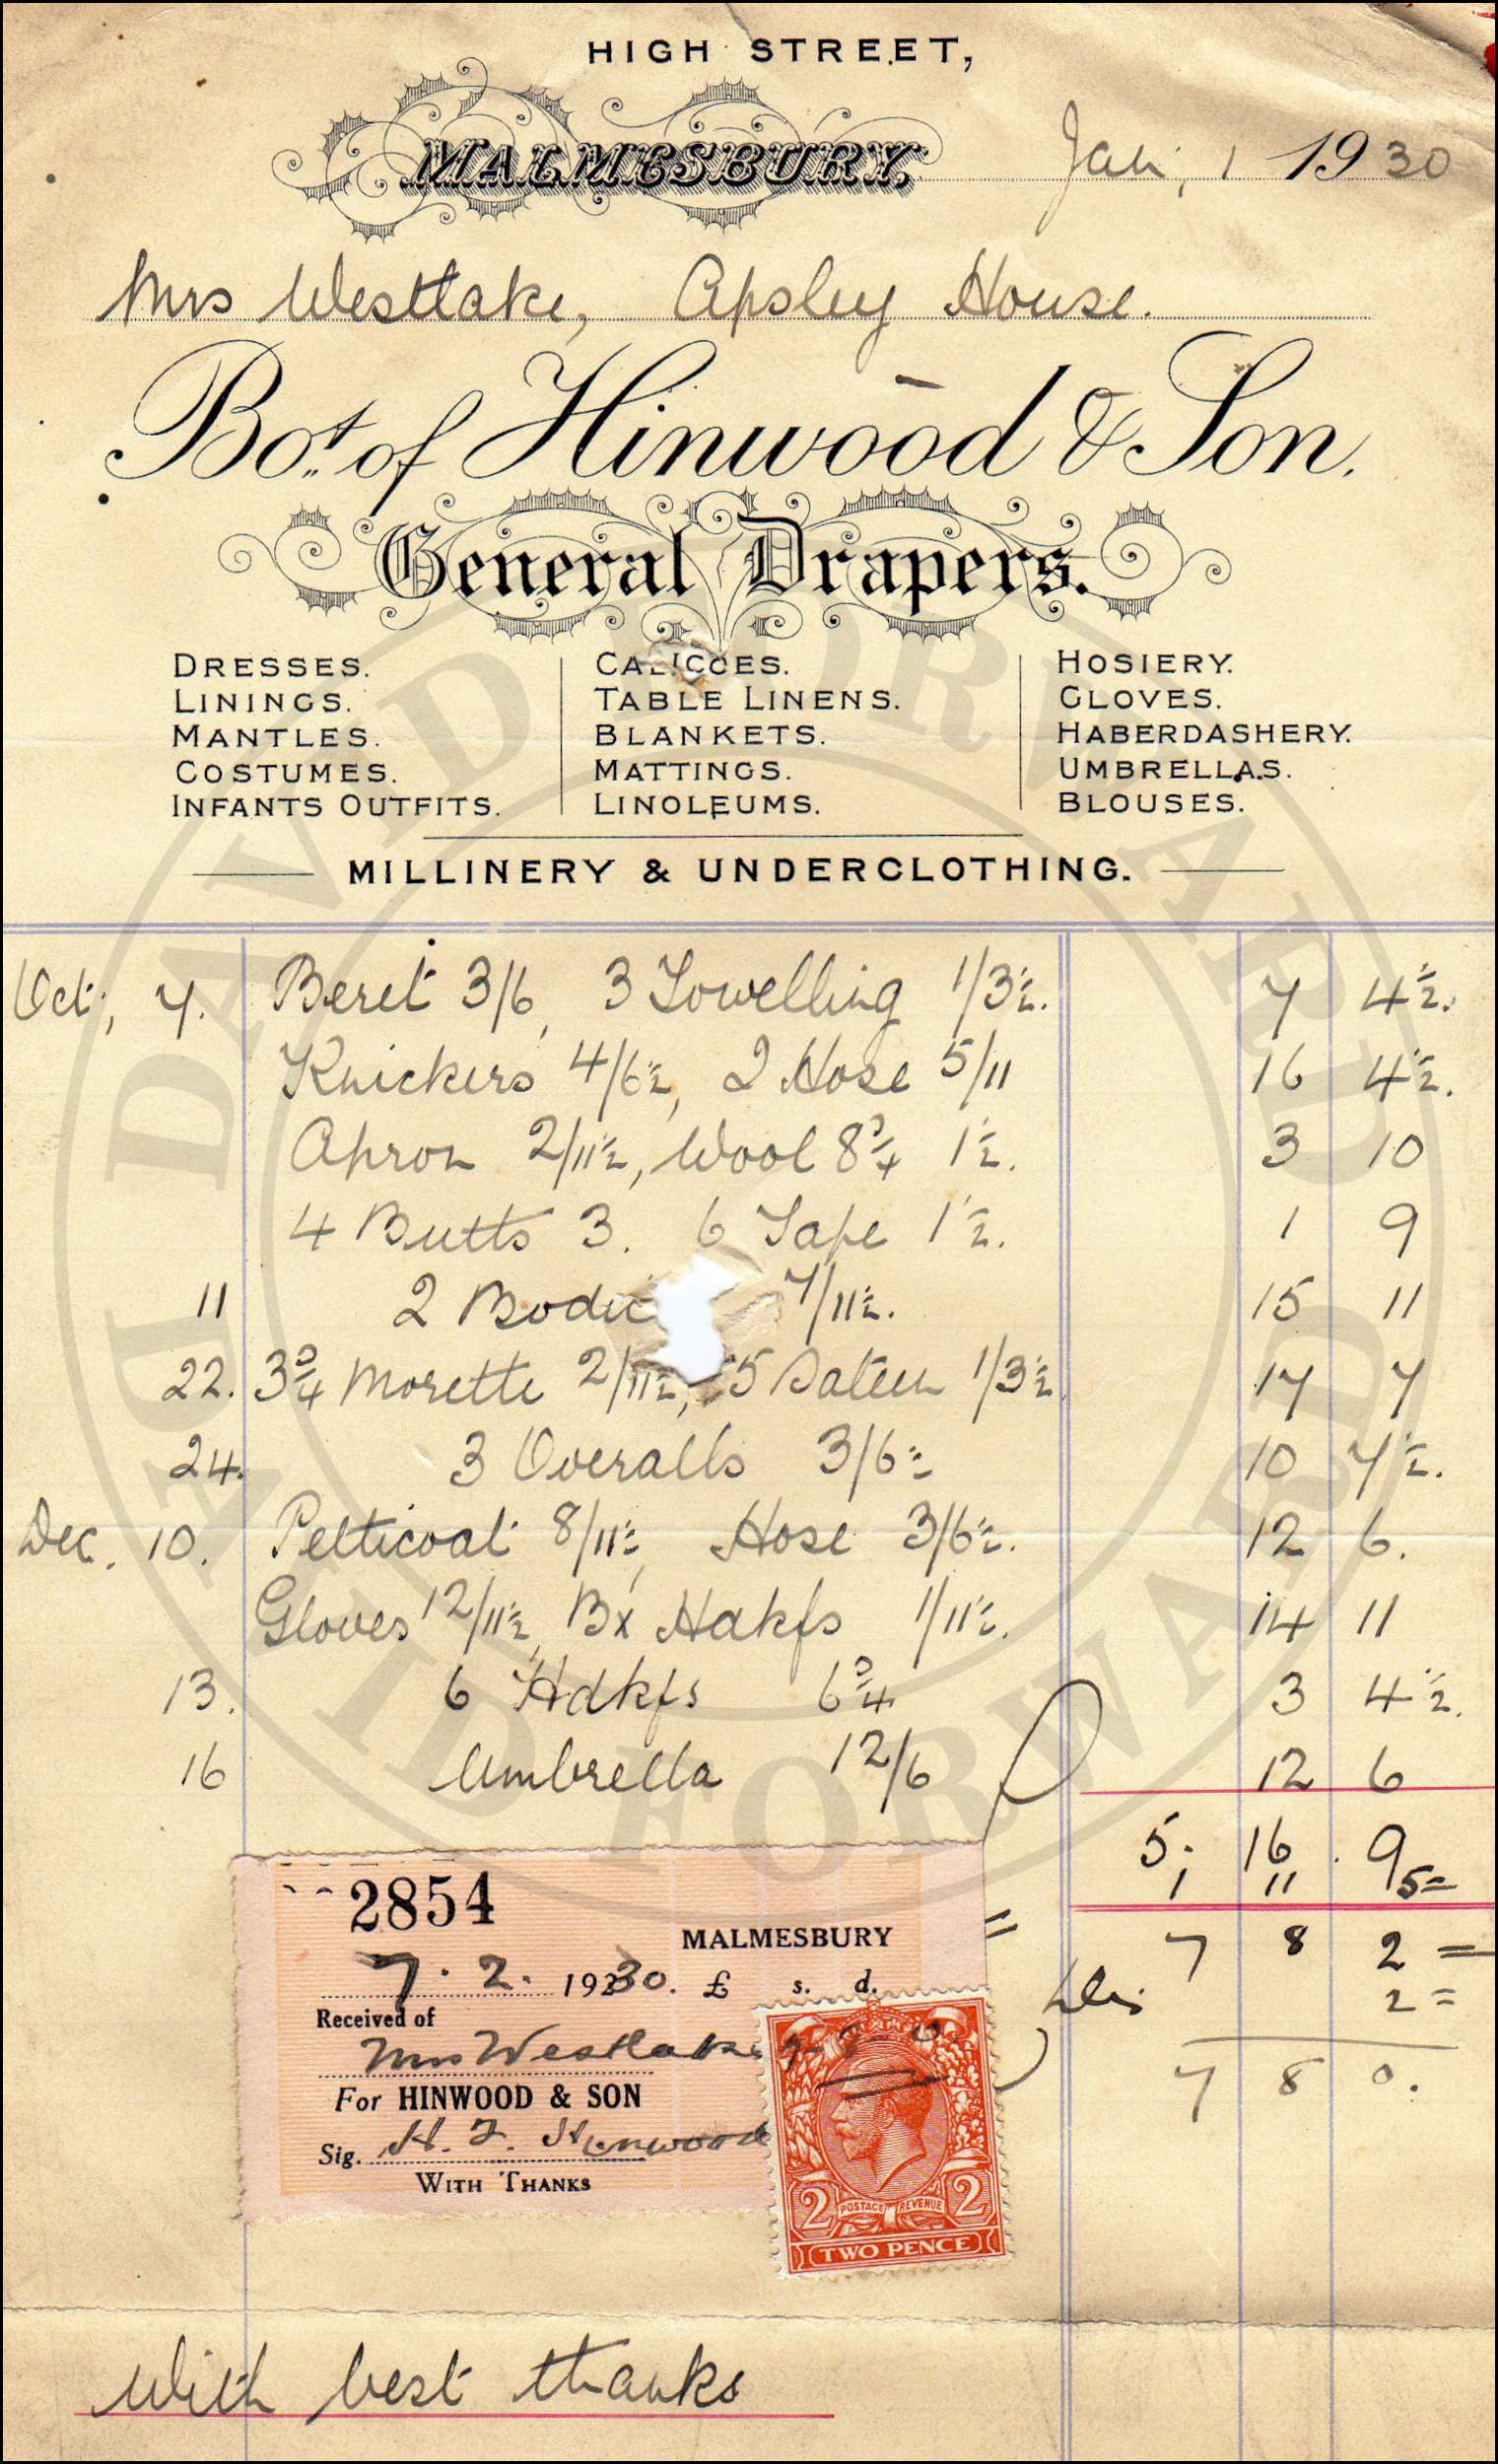 HIGH STREET,
MALMESBURY. Jan, 1 1930
Mrs Westlake, Apsley House.
Bot. of Hinwood & Son,
General Drapers.
DRESSES. CALICOES. HOSIERY.
LININGS. TABLE LINENS. GLOVES.
MANTLES. BLANKETS. HABERDASHERY.
COSTUMES. MATTINGS. UMBRELLAS.
INFANTS OUTFITS. LINOLEUMS. BLOUSES.
MILLINERY & UNDERCLOTHING.
Oct, 7. Beret 3/6, 3 Towelling 1/3½. 7 4½.
Knickers 4/6½, 2 Hose 5/11 16 4½.
Apron 2/11½, Wool 8¾ 1½. 3 10
4 Butts 3. 6 Tape 1½. 1 9
11 2 Bodic 7/11½. 15 11
22. 3¾ Morette 2/11½, 5 Sateen 1/3½ 17 7
24. 3 Overalls 3/6½ 10 7½.
Dec. 10. Petticoat 8/11½, Hose 3/6½. 12 6.
Gloves 12/11½, Bx Hdkfs 1/11½. 14 11
13. 6 Hdkfs 6¾ 3 4½.
16 Umbrella 12/6 12 6
5. 16. 9
1 11 5=
7 8 2=
2=
7 8 0.
2854
MALMESBURY
7. 2. 1930. £ s. d.
Received of
Mrs Westlake 7-8-0.
For HINWOOD & SON
Sig. H. J. Hinwood
WITH THANKS
2 POSTAGE REVENUE 2
TWO PENCE
With best thanks
DAVID FORWARD